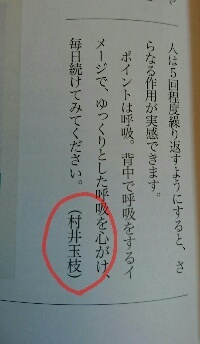 人は５回程度繰り返すようにすると、さ
らなる作用が実感できます。
ポイントは呼吸。背中で呼吸をするイ
メージで、ゆっくりとした呼吸を心がけ、
毎日続けてみてください。（村井玉枝）